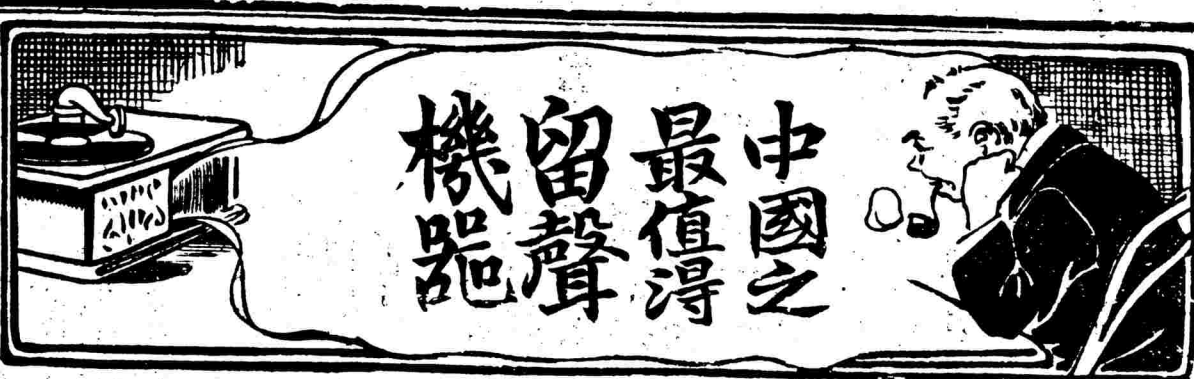 中國之
最值得
留聲
機器